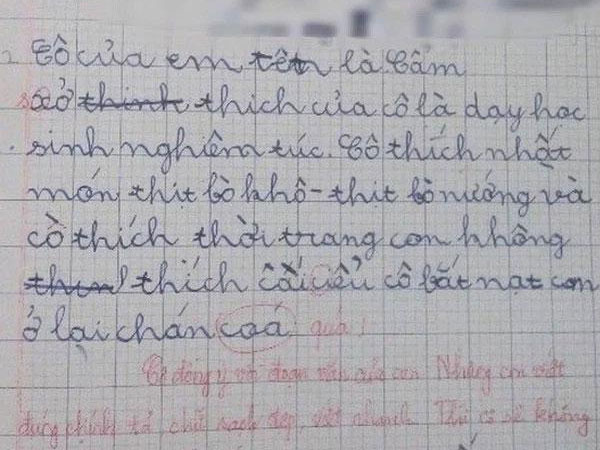 Cô của em tên là Cẩm
Sở thinh thich của cô là dạy học
sinh nghiêm túc. Cô thích nhất
món thịt bò khô - thịt bò nướng và
cò thích thời trang con không
thích cái iểu cô bắt nạt con
ở lại chán coá quá!
Cô đồng ý với đoạn văn của con Nhưng con viết
đúng chính tả, chữ sạch đẹp, viết nhanh Thì cô sẽ không